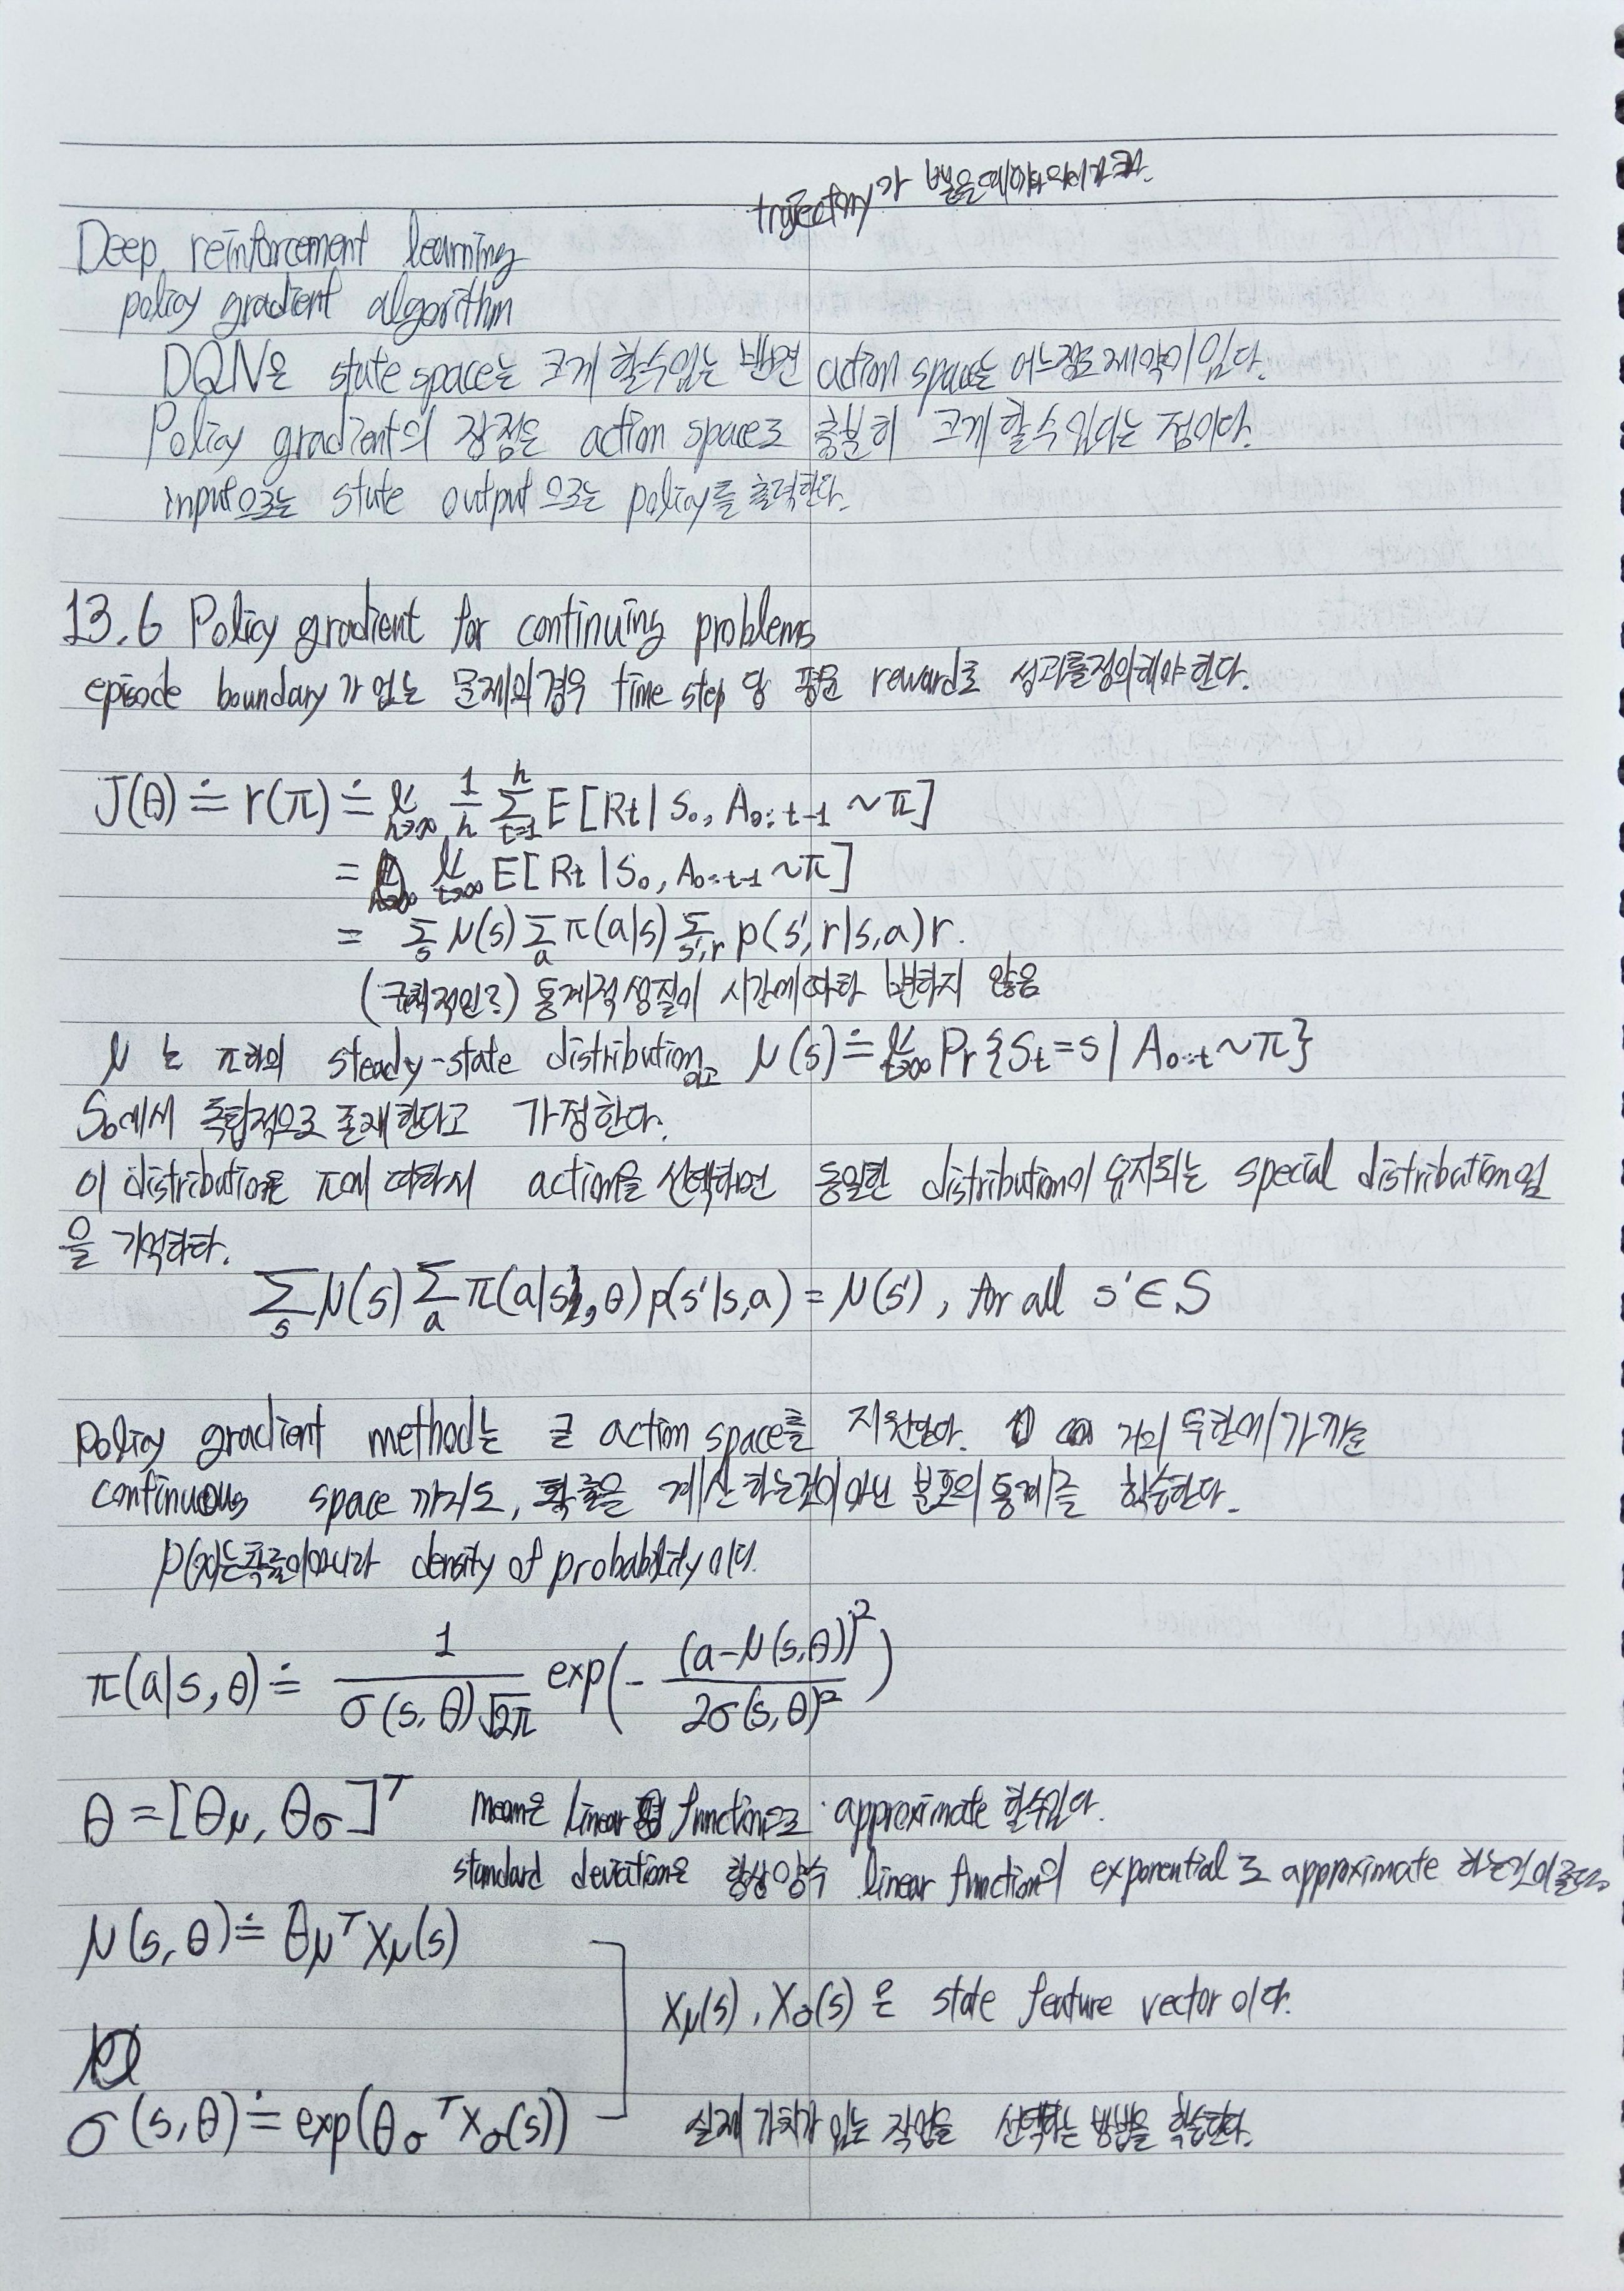 trajectory가
Deep reinforcement learning
policy gradient algorithm
DQN은 state space는 크게 할수있는 반면 action space는 어느정도 제약이 있다.
Policy gradient의 장점은 action space도 충분히 크게 할수있다는 점이다.
input으로는 state output으로는 policy를 출력한다.
13.6 Policy gradient for continuing problems
episode boundary가 없는 문제의경우 time step 당 평균 reward로 성과를정의해야 한다.
J(θ) ≐ r(π) ≐ lim h→∞ 1/h Σ_{t=1}^{h} E[Rt | S₀, A₀:t-1 ~π]
= lim t→∞ E[Rt | S₀, A₀:t-1 ~π]
= Σ_s μ(s) Σ_a π(a|s) Σ_{s',r} p(s', r|s,a) r.
(규칙적인?) 통계적성질이 시간에따라 변하지 않음
μ는 π하의 steady-state distribution이고 μ(s) ≐ lim t→∞ Pr{St=s | A₀:t ~π}
S₀에서 독립적으로 존재한다고 가정한다.
이 distribution은 π에 따라서 action을 선택하면 동일한 distribution이 유지되는 special distribution임
을 기억하라.
Σ_s μ(s) Σ_a π(a|s, θ) p(s'|s,a) = μ(s'), for all s' ∈ S
Policy gradient method는 큰 action space를 지원한다. 거의 무한에 가까운
continuous space 까지도, 확률을 계산 하는것이 아닌 분포의 통계를 학습한다.
p(x)는확률이아니라 density of probability 이다.
π(a|s, θ) ≐ 1/(σ(s, θ)√2π) exp(- (a-μ(s,θ))²/2σ(s, θ)²)
θ = [θμ, θσ]ᵀ mean은 linear function으로 approximate 할수있다.
standard deviation은 항상양수 linear function의 exponential로 approximate 하는것이좋다.
μ(s, θ) ≐ θμᵀ xμ(s)
xμ(s), xσ(s)은 state feature vector 이다.
σ(s, θ) ≐ exp(θσᵀ xσ(s)) 실제 가치가 있는 작업을 선택하는 방법을 학습한다.